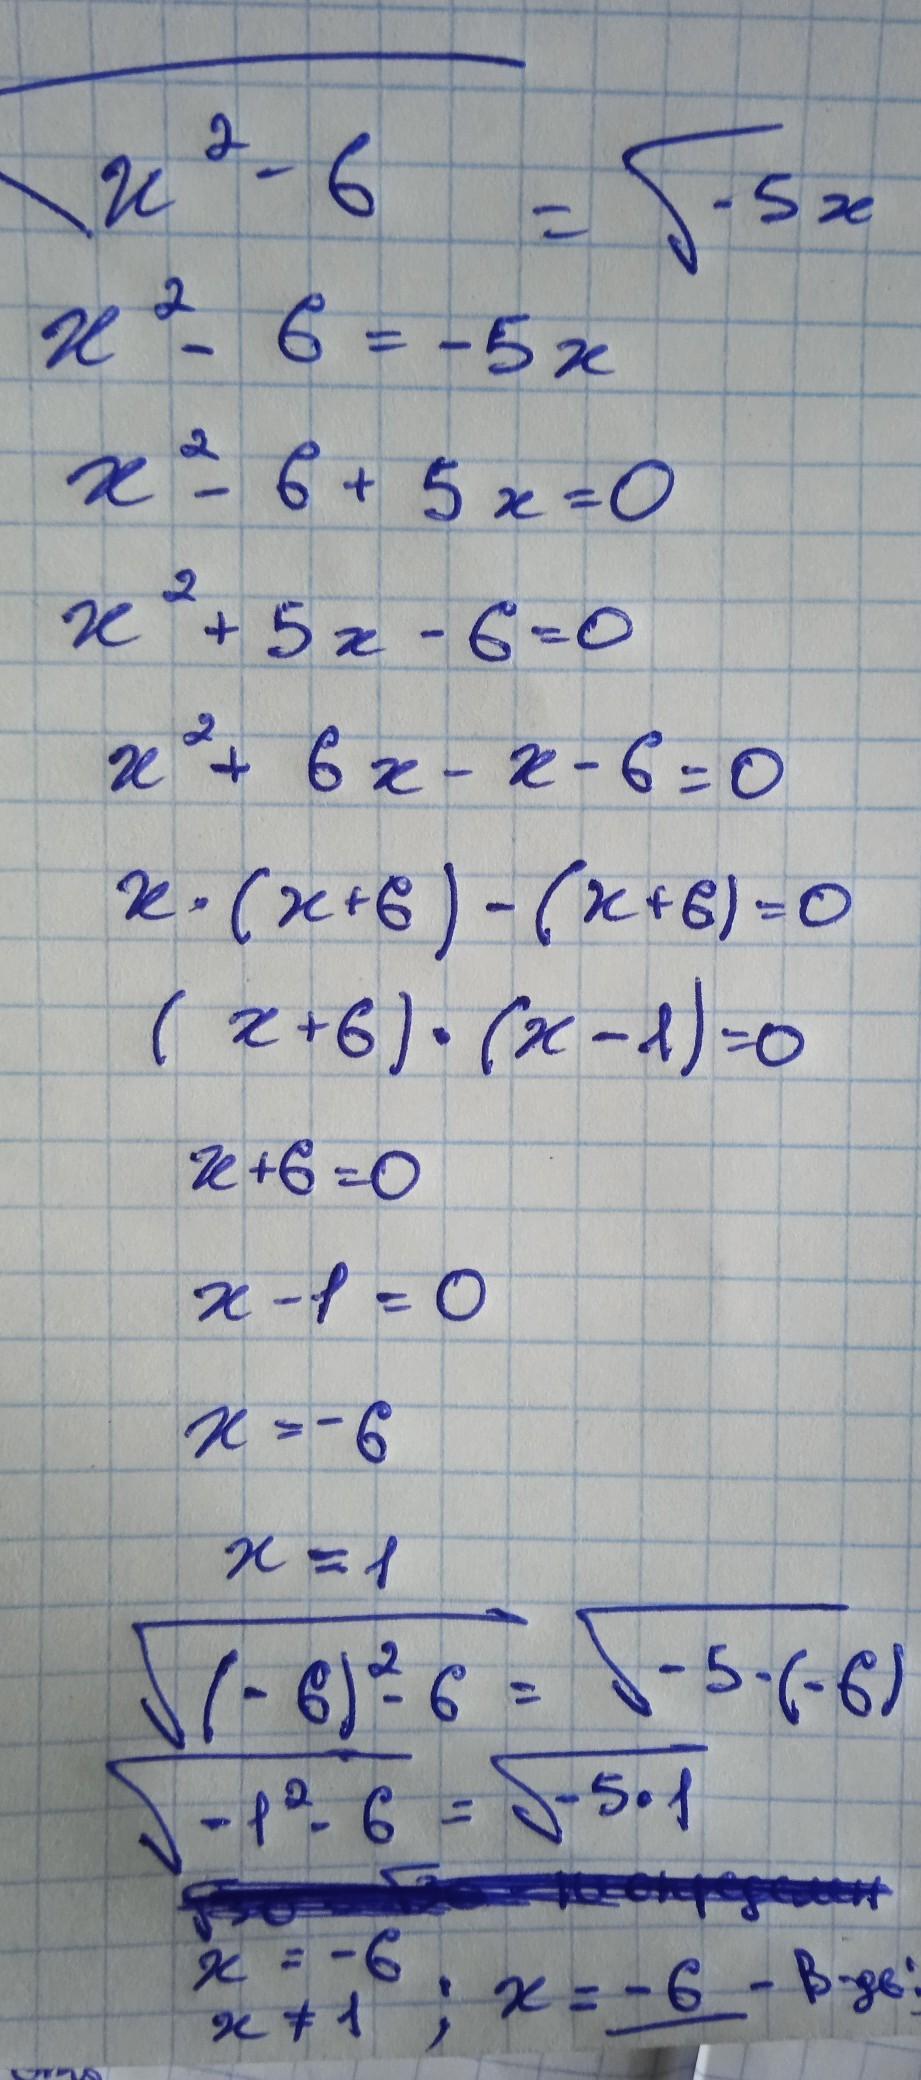 √(x² - 6) = √(-5x)
x² - 6 = -5x
x² - 6 + 5x = 0
x² + 5x - 6 = 0
x² + 6x - x - 6 = 0
x · (x+6) - (x+6) = 0
(x+6) · (x-1) = 0
x+6 = 0
x - 1 = 0
x = -6
x = 1
√((-6)² - 6) = √(-5·(-6))
√(-1² - 6) = √(-5·1)
x = -6
x ≠ 1 ; x = -6 -